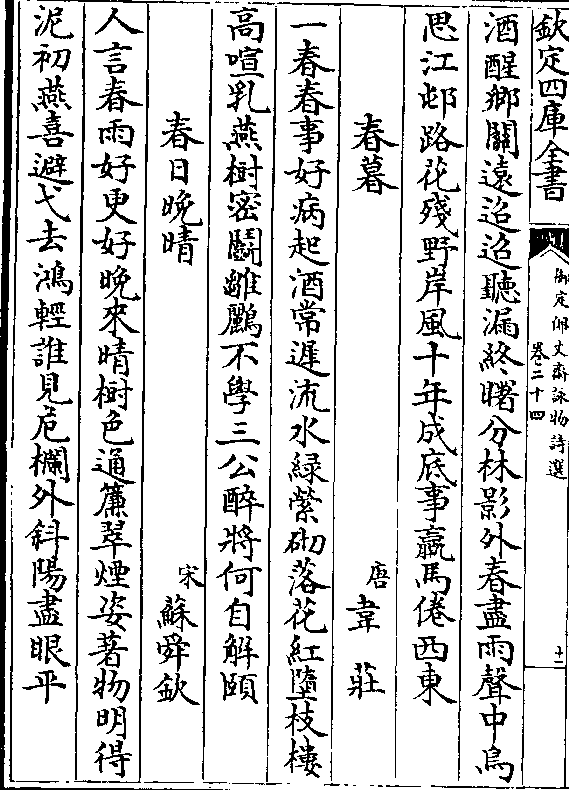 欽定四庫全書
御定佩文齋詠物詩選
卷二十四
十二
酒醒鄉關遠迢迢聽漏終曙分林影外春盡雨聲中鳥
思江邨路花殘野岸風十年成底事羸馬倦西東
春暮
唐 韋莊
一春春事好病起酒常遲流水綠縈砌落花紅墮枝樓
高喧乳燕樹密鬭雛鸝不學三公醉將何自解頤
春日晚晴
宋 蘇舜欽
人言春雨好更好晚來晴樹色通簾翠煙姿著物明得
泥初燕喜避弋去鴻輕誰見危欄外斜陽盡眼平